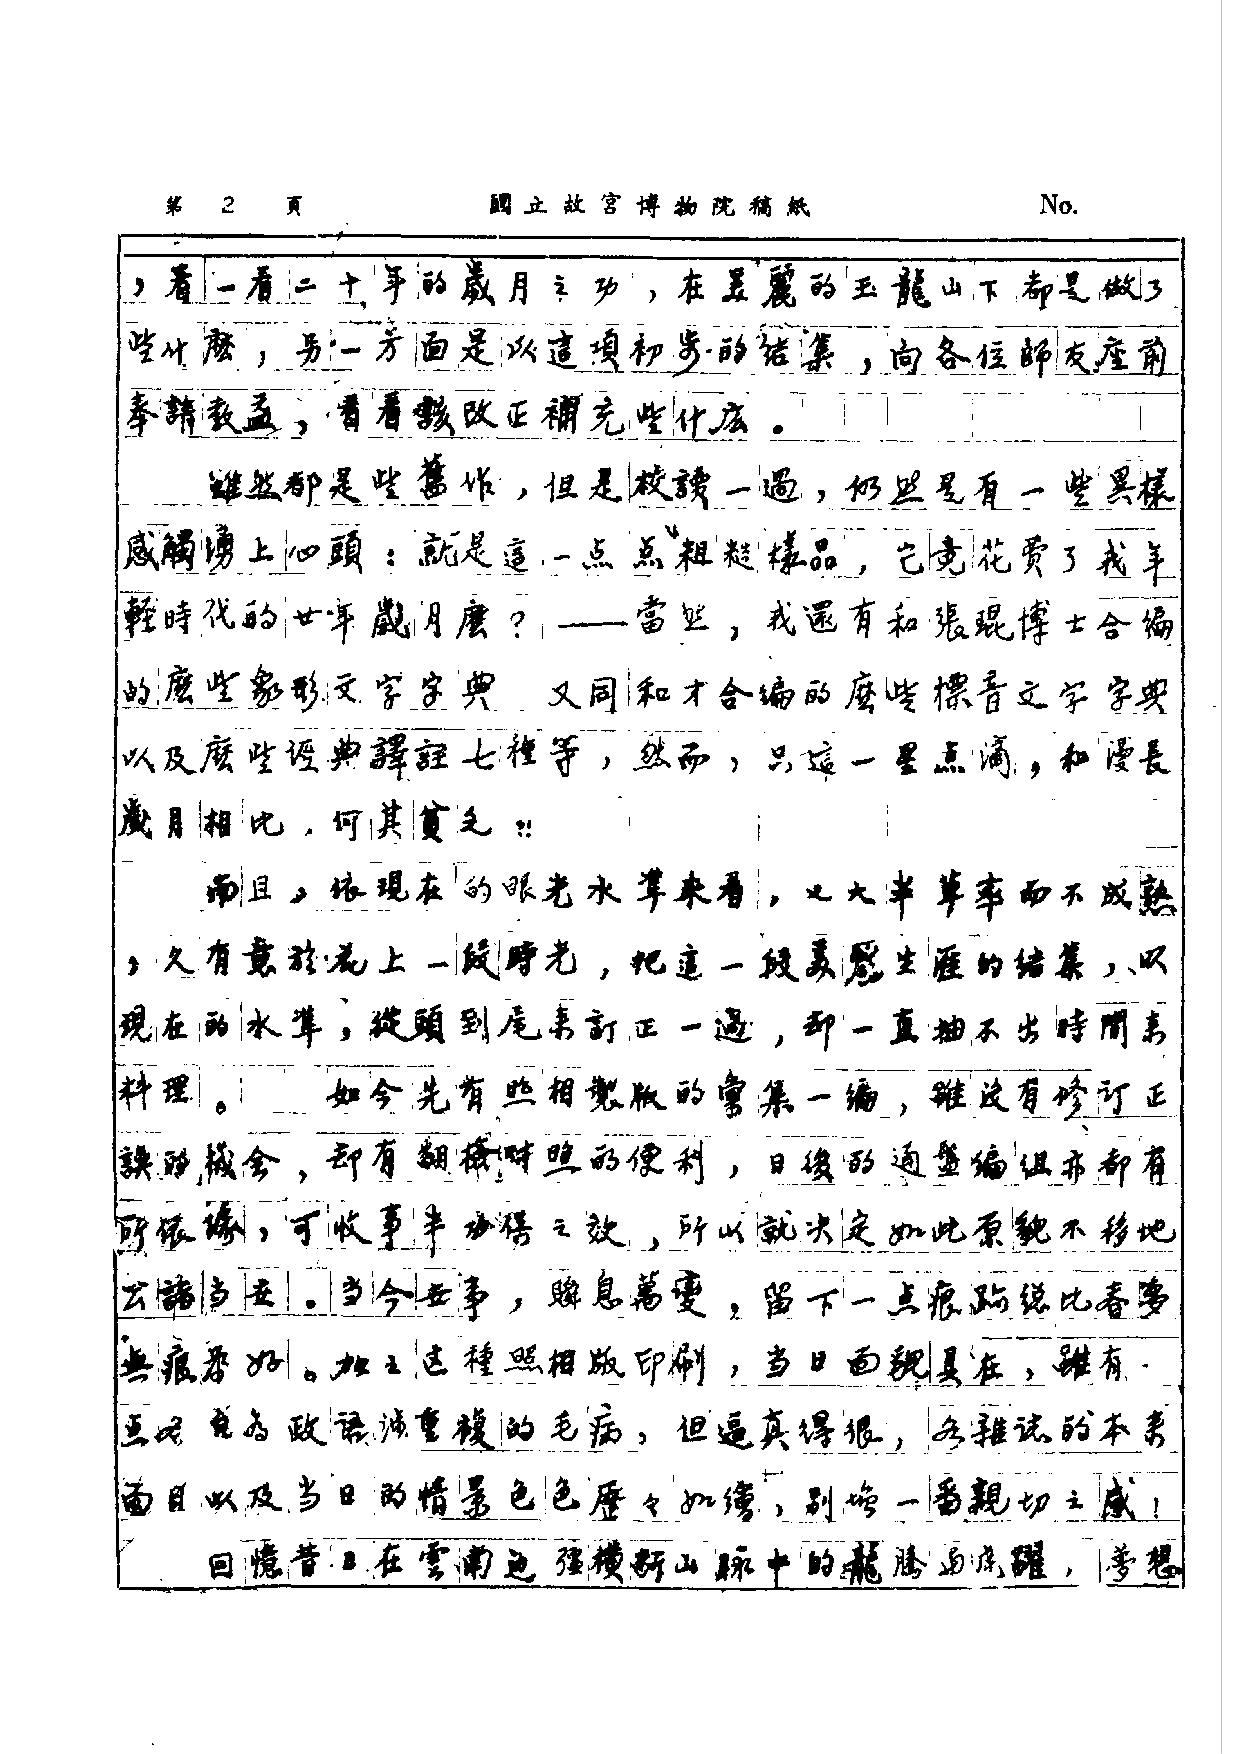 第 2 頁 國立故宮博物院稿紙 No.
，看一看二十年的歲月之功，在美麗的玉龍山下都是做了
些什麽，另一方面是以這項初步的結集，向各位師友座前
奉請教益，看看該改正補充些什庅。
雖然都是些舊作，但是校讀一過，仍然是有一些異樣
感觸湧上心頭：就是這一点点粗糙樣品，它竟花費了我年
輕時代的廿年歲月麽？——當然，我還有和張琨博士合編
的麽些象形文字字典 又同和才合編的麽些標音文字字典
以及麽些經典譯註七種等，然而，只這一星点滴，和漫長
歲月相比，何其貧乏！！
而且，依現在的眼光水準來看，也大半草率而不成熟
，久有意於花上一段時光，把這一段美麗生涯的結集，以
現在的水準，從頭到尾来訂正一過，却一直抽不出時間来
料理。 如今先有照相製版的彙集一編，雖没有修訂正
誤的機会，却有翻檢對照的便利，日後的通盤編組亦都有
所依據，可收事半功倍之效，所以就决定如此原貌不移地
公諸当世。当今世事，瞬息萬變，留下一点痕跡總比春夢
無痕為好。加之这種照相版印刷，当日面貌具在，雖有
点 為政語涉重複的毛病，但逼真得很，各雜誌的本来
面目以及当日的情景色色歷々如繪，别增一番親切之感！
回憶昔日在雲南边疆橫断山脉中的龍騰 虎躍，夢想